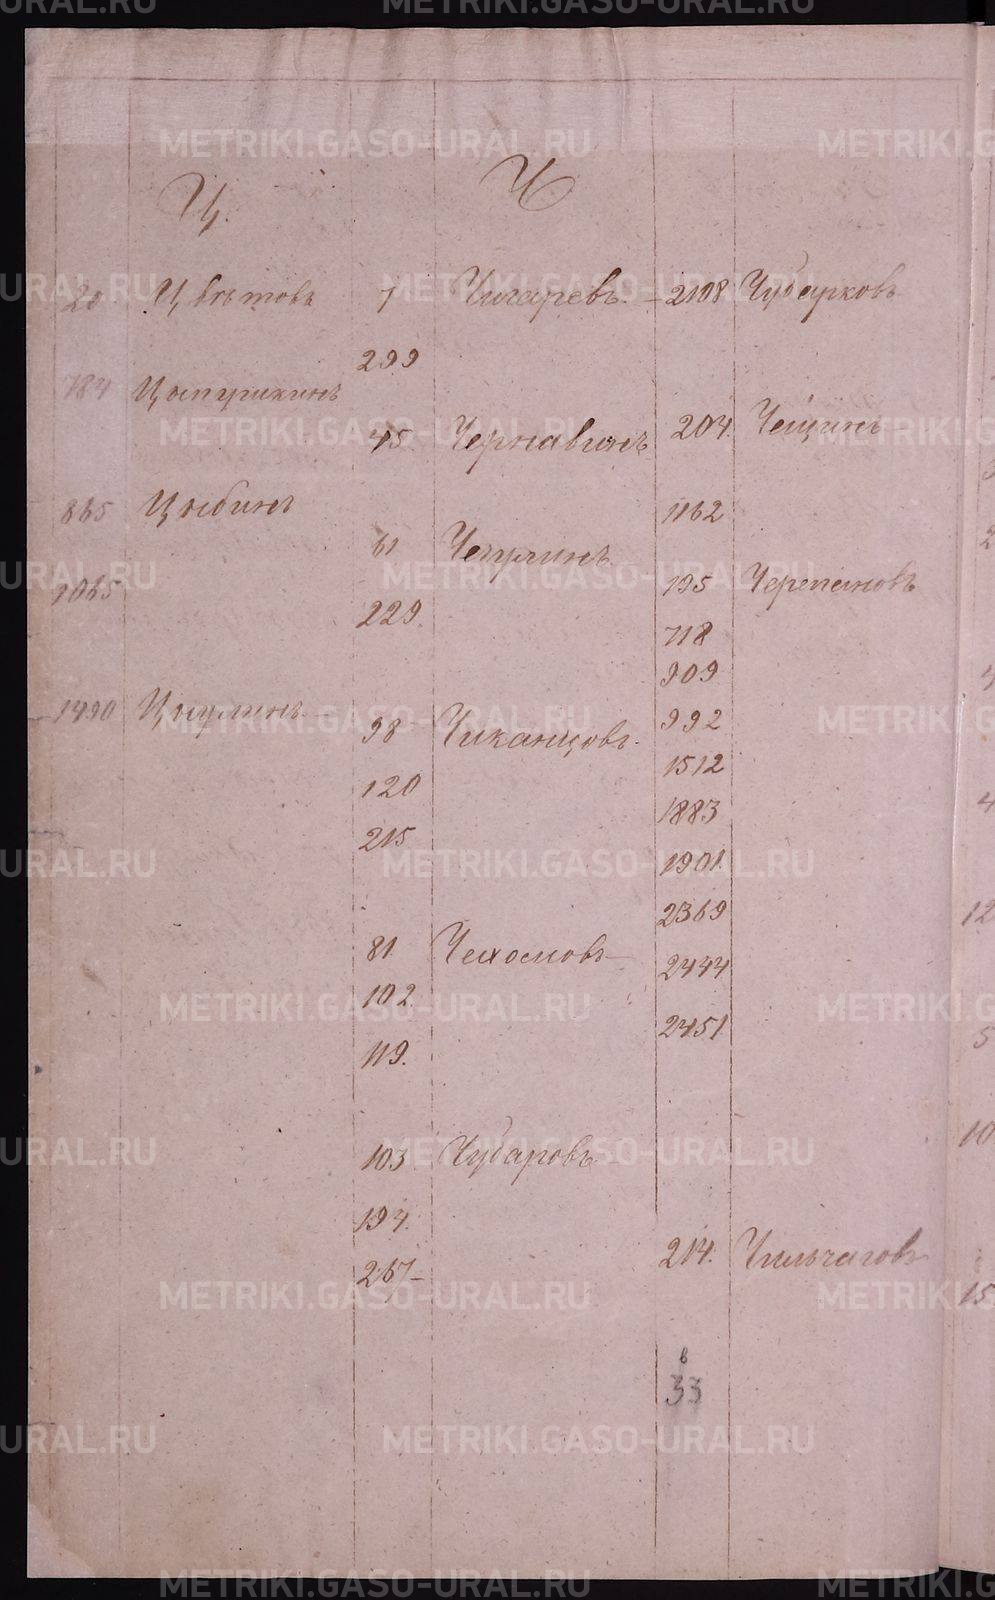 Ц.
20 Цвѣтовъ
784 Цыпушкинъ
865 Цыбинъ
1065
1490 Цыулинъ
Ч
1 Чигаревъ
299
45 Чернавинъ
61 Чепулинъ
229.
98 Чиканцовъ.
120
215
81 Чехомовъ
102.
119.
103 Чубаровъ
194.
267
2108 Чубарковъ
204. Чещинъ
1162
195 Черепановъ
718
909
992
1512
1883
1901
2369
2444
2451
214. Чильчаговъ
в
33
METRIKI.GASO-URAL.RU